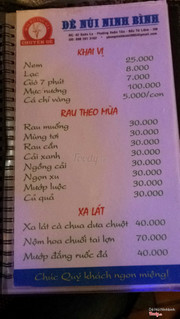 DÊ NÚI NINH BÌNH
KHAI VỊ
Nem 25.000
Lạc 8.000
Giá 7 phát 7.000
Mực nướng 100.000
Cá chỉ vàng 5.000/con
RAU THEO MÙA
Rau muống 30.000
Mùng tơi 30.000
Rau cần 30.000
Cải xanh 30.000
Ngồng cải 30.000
Ngọn xu 30.000
Mướp luộc 30.000
Củ quả 30.000
XA LÁT
Xa lát cà chua dưa chuột 40.000
Nộm hoa chuối tai lợn 70.000
Mướp đắng nước đá 40.000
Chúc Quý khách ngon miệng!